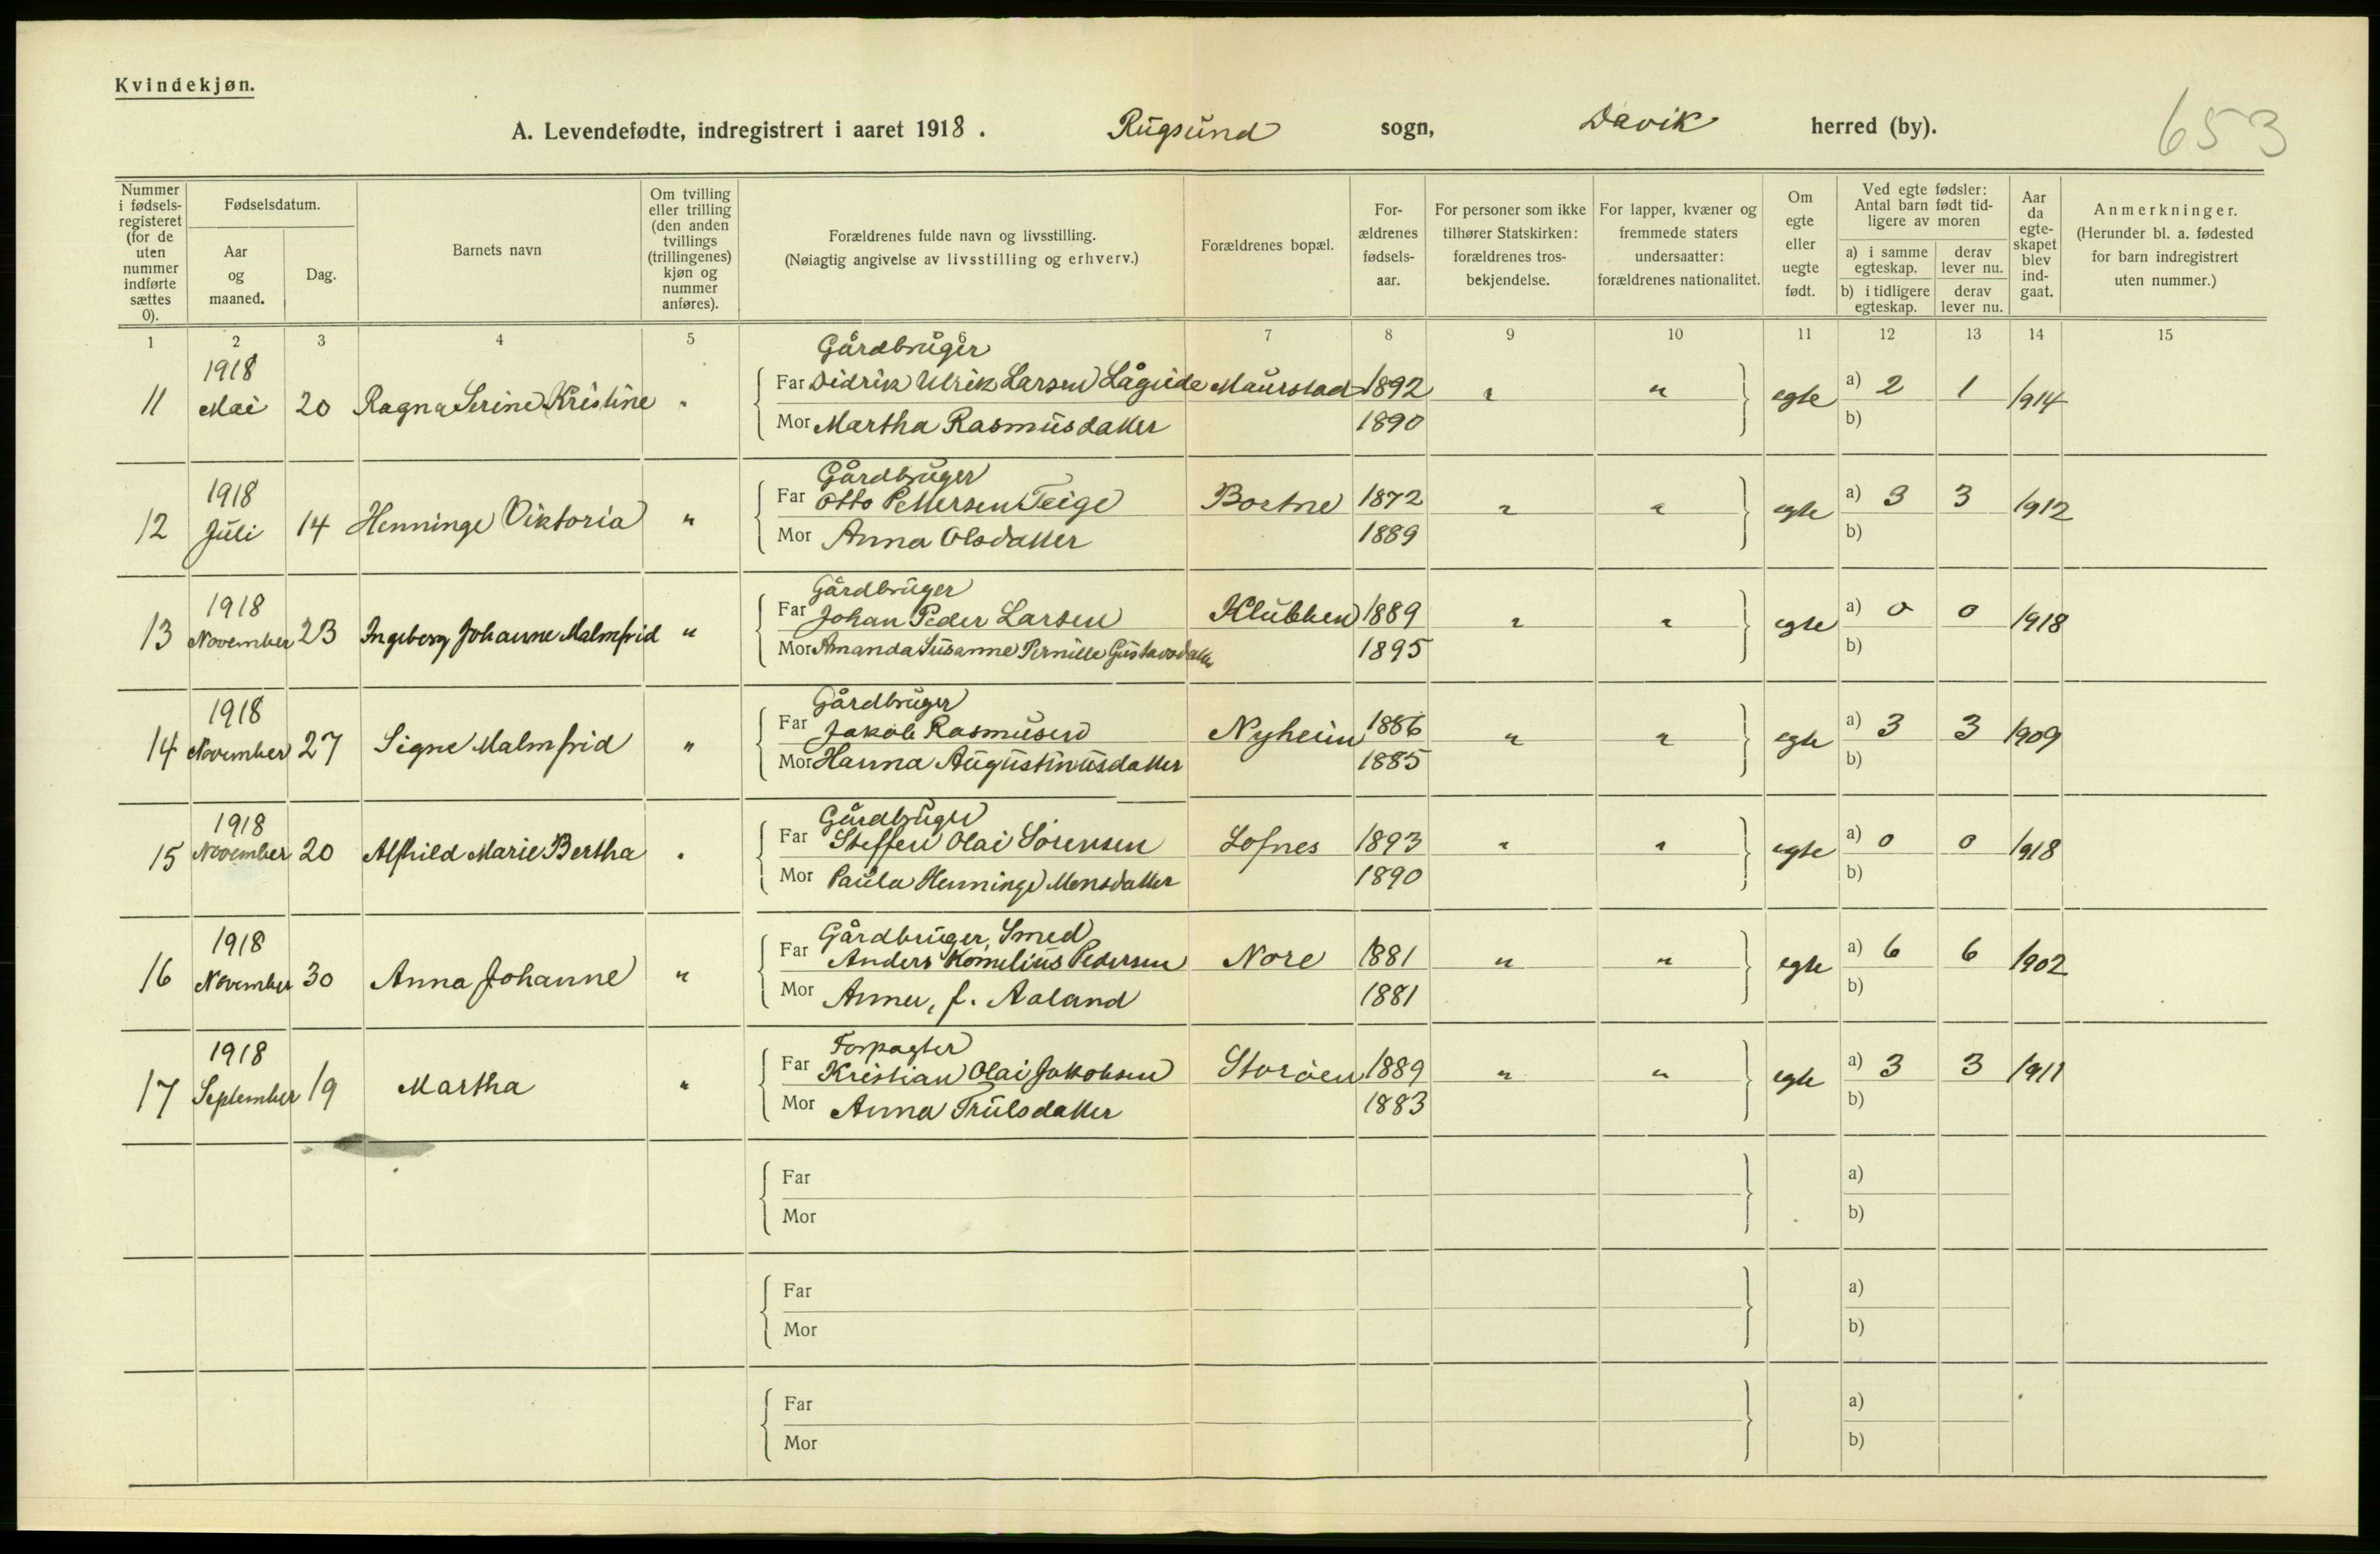 Kvindekjøn.
A. Levendefødte, indregistrert i aaret 1918. Rugsund sogn, Davik herred (by). 653
Nummer i fødselsregisteret (for de uten nummer indførte sættes 0).
Fødselsdatum.
Aar og maaned.
Dag.
Barnets navn
Om tvilling eller trilling (den anden tvillings (trillingenes) kjøn og nummer anføres).
Forældrenes fulde navn og livsstilling.
(Nøiagtig angivelse av livsstilling og erhverv.)
Forældrenes bopæl.
Forældrenes fødselsaar.
For personer som ikke tilhører Statskirken: forældrenes trosbekjendelse.
For lapper, kvæner og fremmede staters undersaatter: forældrenes nationalitet.
Om egte eller uegte født.
Ved egte fødsler: Antal barn født tidligere av moren
a) i samme egteskap. derav lever nu.
b) i tidligere egteskap. derav lever nu.
Aar da egteskapet blev indgaat.
Anmerkninger.
(Herunder bl. a. fødested for barn indregistrert uten nummer.)
1 2 3 4 5 6 7 8 9 10 11 12 13 14 15
1918 Gårdbruger
11 Mai 20 Ragna Serine Kristine " Far Didrik Ulrik Larsen Lågeide Maurstad 1892 " " egte a) 2 1 1914
Mor Martha Rasmusdatter 1890 b)
1918 Gårdbruger
12 Juli 14 Henninge Viktoria " Far Otto Pettersen Teige Bortne 1872 " " egte a) 3 3 1912
Mor Anna Olsdatter 1889 b)
1918 Gårdbruger
13 November 23 Ingeborg Johanne Malmfrid " Far Johan Peder Larsen Klubben 1889 " " egte a) 0 0 1918
Mor Amanda Susanne Pernille Gustavsdatter 1895 b)
1918 Gårdbruger
14 November 27 Signe Malmfrid " Far Jakob Rasmusen Nyheim 1886 " " egte a) 3 3 1909
Mor Hanna Augustinusdatter 1885 b)
1918 Gårdbruger
15 November 20 Alfhild Marie Bertha " Far Steffen Olai Sörensen Lofnes 1893 " " egte a) 0 0 1918
Mor Paula Henninge Monsdatter 1890 b)
1918 Gårdbruger, Smed
16 November 30 Anna Johanne " Far Anders Kornelius Pedersen Nore 1881 " " egte a) 6 6 1902
Mor Anna, f. Aaland 1881 b)
1918 Forpagter
17 September 19 Martha " Far Kristian Olai Jakobsen Storöen 1889 " " egte a) 3 3 1911
Mor Anna Trulsdatter 1883 b)
Far a)
Mor b)
Far a)
Mor b)
Far a)
Mor b)